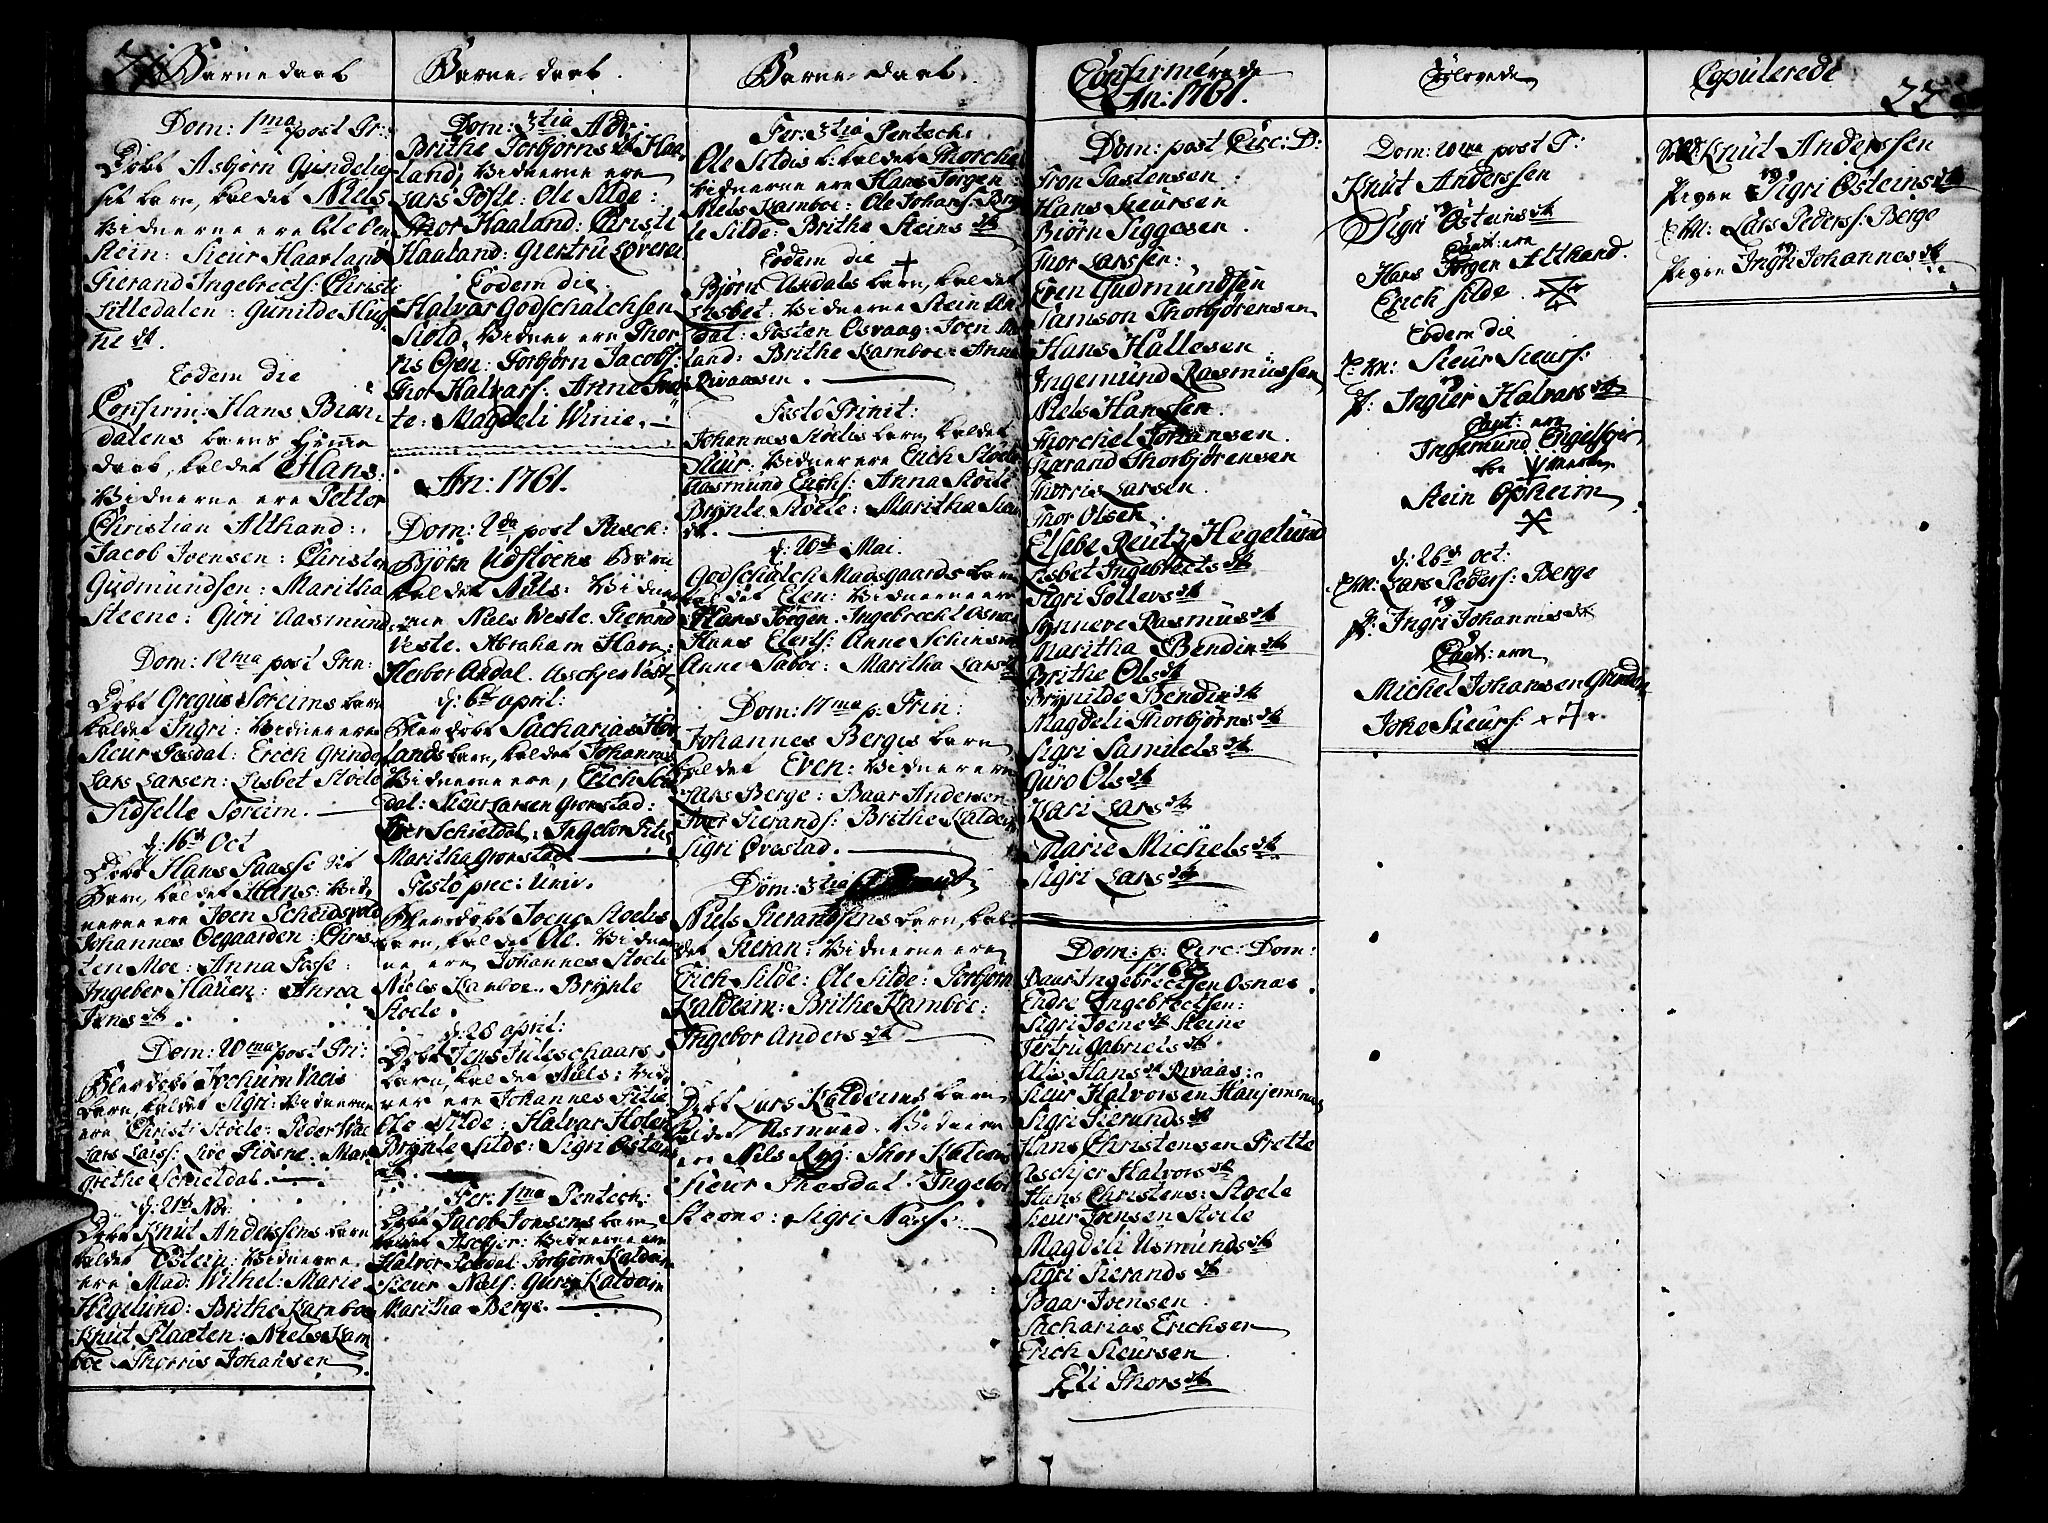 Barne daab
Dom: 1ma post Tr:
Døbt Asbjørn Gundelig
sit barn, kaldet Niels
Vidnerne ere Ole ben
Stein: Sieur Haarland
Sierand Ingebrects: Christi
Litledalen: Gunilde Hug
ne dt.
Eodem die
Confirm: Hans Biør
dalens barns hjemme
daab, kaldet Hans:
Vidnerne ere Petter
Christian Althand:
Jacob Joensen: Christen
Gudmundsen: Maritha
Steene: Guri Aasmund
Dom: 12ma post Trin:
Døbt Gregus Søreims barn
kaldet Ingri: Vidner ere
Sieur Tosdal: Erich Grinde
Lars Larsen: Lisbet Stoele
Sidselle Søreim.
d: 16d Oct
Døbt Hans Saasse sit
Barn, kaldet Hans: Vid
nerne ere Joen Scheidsvold
Johannes Oegaarden: Chris
ten Moe: Anna Sasse:
Ingeber Hauen: Anna
Jens dt.
Dom: 20ma post Tri:
Blev døbt Jochum Vacis
Barn, kaldet Sigri: Vidnerne
ere Christi Stoele: Peder Vac
Lars Larss: Live Røsne: Mar
grethe Schieldal.
d: 21d Nov:
Døbt Knut Anderssens barn
kaldet Østein: Vidnerne
ere Mad: Wilhel: Marie
Hegelund: Brithe Kamboe
Knut Flaaten: Niels Kam
boe Thorris Johansen
Barne daab.
Dom: 3tia Adv:
Brithe Torbjørns dt Haa
land, Vidnerne ere
Lars Tofte: Ole Silde:
Thor Haaland: Christi
Haaland: Giertru Løvena
Eodem die.
Halvar Godschalchsen
Stold, Vidner ere Thor
ris Øren: Torbjørn Jacobs:
Thor Halvars: Anne
te: Magdeli Winie.
An: 1761.
Dom: 2da post Pasch:
Bjørn Udstoens Barn
kaldet Nils: Vidner
ere Niels Weste. Sierand
Veste. Abraham Ham:
Herbor Andal. Aschjer Vest
d: 6te april:
Blev døbt Sacharias Hov
lands barn, kaldet Johannes
Vidnerne ere, Erich Sel
dal: Sieur Larsen Gronstad:
Iver Schieldal: Ingebor Titie
Maritha Gronstad.
Festo prec: Univ.
Blev døbt Joene Stoelis
barn, kaldet Ole. Vidner
ne ere Johannes Stoele
Niels Kamboe. Brynle
Stoele.
d: 28 april:
Døbt Jens Juleschaars
barn, kaldet Niels: Vid
ner ere Johannes Titie
Ole Silde: Halvar Holen
Brynle Silde: Sigri Østeins
dt.
Fer: 1ma Pentech:
Døbt Jacob Jonsens barn
kaldet Aschjer: Vidnerne ere
Halvor Tosdal: Torbjørn Kaldeim
Sieur Niels: Guri Kaldeim
Maritha Berge.
Barne daab.
Fer: 3tia Pentech:
Ole Sildis b: kaldet Thorchel
Vidnerne ere Hans Jørgen
Niels Kamboe: Ole Johans: Bryn
le Silde: Brithe Steins dt
Eodem die +
Bjørn Andals barn, kaldet
Lisbet: Vidnerne Stein An
dal: Tosten Osvaag: Joen
land: Brithe Kamboe: Anna
Rivaasen.
Festo Trinit:
Johannes Stoelis barn, kaldet
Sieur: Vidner ere Erich Stoele
Aasmund Erichs: Anna Stoele
Brynle Støele: Maritha
dt.
d: 20d Mai.
Godschalch Madsgaards barn
kaldet Elen: Vidnerne ere
Hans Jørgen. Ingebrecht Osnas
Hans Elerts: Anne Schins
Anne Saboe: Maritha Lars dt
Dom: 17ma p: Trin:
Johannes Bergis barn
kaldet Even: Vidnerne
Lars Berge: Baar Andersen
Iver Sierands: Brithe Kaldeim
Sigri Øvestad.
Dom: 3tia
Niels Sierandsens barn, kal
det Sieran: Vidnerne ere
Erich Silde: Ole Silde: Torbjørn
Kaldeim: Brithe Kamboe:
Ingebor Anders dt
Døbt Lars Kaldeims barn
kaldet Asmund. Vidnerne
ere Nils Ryg: Thor Kaldeim
Sieur Thosdal. Ingebor
Steene: Sigri Nasse.
Confirmerede
An: 1761.
Dom: post Circ: D:
Tron Tastensen:
Hans Sieursen
Bjørn Siggesen.
Thor Larssen:
Even Gudmundsen
Samson Thorbjørensen
Hans Hallesen
Ingemund Rasmussen
Niels Hanssen.
Thorchel Johansen.
Sierand Thorbjørensen
Thorris Larsen.
Thor Olsen.
Elsebe Reutz Hegelund
Lisbet Ingebrects dt
Sigri Tollevs dt
Synneve Rasmus dt
Maritha Bendix dt
Brithe Ols dt
Brynilde Bendix dt
Magdeli Thorbjørns dt
Sigri Samuels dt
Guro Ols dt
Kari Lars dt
Marie Michels dt
Sigri Lars dt
Dom: p: Circ: Dom:
1763
Baar Ingebrectsen Osnas.
Endre Ingebrectsen:
Sigri Joene dt Steine
Jertru Gabriels dt
Alis Hans dt Rivaas:
Sieur Halvorsen Haujemsnes
Sigri Sierands dt
Hans Christensen Frette
Aschjer Halvors dt
Hans Christens: Stoele
Sieur Jensen Stoele
Magdeli Asmunds dt
Sigri Sierands dt
Baar Ivensen.
Sacharias Erichsen
Erich Sieursen
Eli Thors dt
Trolovede
Dom: 20ma post T:
Knut Anderssen
Sigri Østeins dt
Caut: ere
Hans Jørgen Althand.
Erich Silde.
Eodem die
E: M: Sieur Sieurs:
P: Ingier Halvars dt
Caut: ere
Ingemund Engelsgjer
Stein Opheim
d: 26d oct:
E: M: Lars Peders: Berge
P: Ingri Johannis dt
Caut: ere
Michel Johansen Grinde
Joke Sieurs:
Copulerede
22
Sold: Knut Anderssen
Pigen Sigri Østeins dt
E: M: Lars Peders: Berge
Pigen Ingri Johannes dt